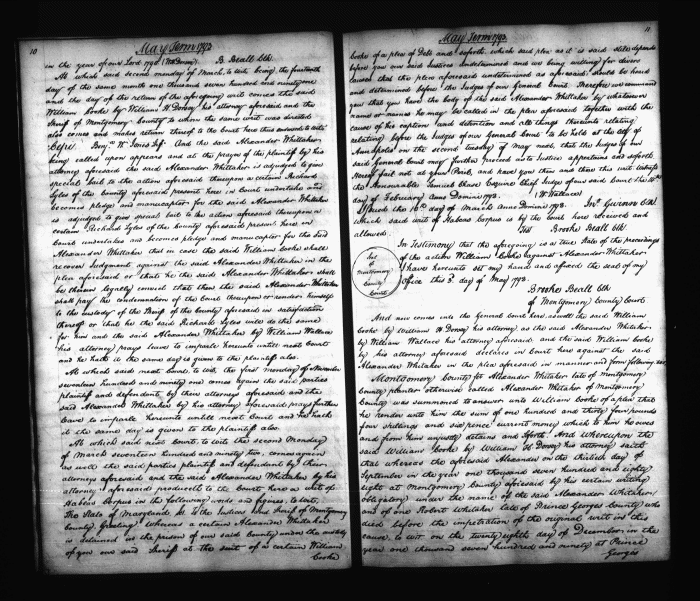 10
May Term 1792
in the year of our Lord 1791 B. Beall Clk.
At which said second monday of March, to wit, being the fourteenth
day of the same month one thousand seven hundred and ninety one
and the day of the return of the aforegoing writ comes the said
William Cooke by William H. Dorsey his attorney aforesaid and the
Sheriff of Montgomery County to whom the same writ was directed
also comes and makes return thereof to the Court here thus endorsed to wit
Cepi. Benj. W. Jones Shff. And the said Alexander Whittaker
being called upon appears and at the prayer of the plaintiff by his
attorney aforesaid the said Alexander Whittaker is adjudged to give
special bail to the action aforesaid thereupon a certain Richard
Lyles of the County aforesaid present here in Court undertakes and
becomes pledge and manucaptor for the said Alexander Whittaker
is adjudged to give special bail to the action aforesaid thereupon a
certain Richard Lyles of the County aforesaid present here in
Court undertakes and becomes pledge and manucaptor for the said
Alexander Whittaker that in case the said William Cooke shall
recover Judgment against the said Alexander Whittaker in the
plea aforesaid or that he the said Alexander Whittaker shall
be thereon legally convict that then the said Alexander Whittaker
shall pay the condemnation of the Court thereupon or render himself
to the custody of the Sheriff of the County aforesaid in satisfaction
thereof or that he the said Richard Lyles will do the same
for him and the said Alexander Whittaker by William Wallace
his attorney prays leave to imparle hereunto until next Court
and he hath it the same day is given to the plaintiff also.
At which said next Court to wit, the first monday of November
seventeen hundred and ninety one comes again the said parties
plaintiff and defendant by their attorneys aforesaid and the
said Alexander Whittaker by his attorney aforesaid prays further
leave to imparle hereunto until next Court and he hath
it the same day is given to the plaintiff also.
At which said next Court to wit the second Monday
of March seventeen hundred and ninety two, comes again
as well the said parties plaintiff and defendant by their
attorneys aforesaid and the said Alexander Whittaker by his
attorney aforesaid produceth to the Court here a writ of
Habeas Corpus in the following words and figures to wit,
The State of Maryland Sc. to the Justices and Sheriff of Montgomery
County Greeting Whereas a certain Alexander Whittaker
is detained in the prison of our said County under the custody
of you our said Sheriff at the suit of a certain William
Cooke
11
May Term 1792
Cooke of a plea of Debt and soforth. which said plea as it is said still depends
before you our said Justices undetermined and we being willing for divers
causes that the plea aforesaid undetermined as aforesaid should be heard
and determined before the Judges of our General Court. Therefore we command
you that you have the body of the said Alexander Whittaker by whatsoever
name or names he may be called in the plea aforesaid together with the
cause of his caption and detention and all things thereunto relating
before the Judges of our General Court to be held at the City of
Annapolis on the second tuesday of May next, that the Judges of our
said General Court may further proceed as to Justice appertains and soforth.
Hereof fail not at your Peril, and have you then and there this writ Witness
the Honourable Samuel Chase Esquire Chief Judge of our said Court this
day of February Anno Domini 1792. (W. Wallace)
Issued the 10th day of March Anno Domini 1792. Jno. Gwinn Clk
Which said writ of Habeas Corpus is by the Court here received and
allowed. Test Brooke Beall Clk
In Testimony that the aforegoing is a true State of the proceedings
of the action William Cooke against Alexander Whittaker
I have hereunto set my hand and affixed the seal of my
Office this 3d day of May 1792.
Seal
of
Montgomery
County
Court
Brooke Beall Clk
of Montgomery County Court.
And now comes into the General Court here, as well the said William
Cooke by William H. Dorsey his attorney as the said Alexander Whitaker
by William Wallace his attorney aforesaid, and the said William Cooke
by his attorney aforesaid declares in Court here against the said
Alexander Whitaker in the plea aforesaid in manner and form following,
Montgomery County Sc. Alexander Whitaker late of Montgomery
County planter otherwise called Alexander Whitaker of Montgomery
County was summoned to answer unto William Cooke of a plea that
he render unto him the sum of one hundred and thirty four pounds
four shillings and six pence current money which to him he owes
and from him unjustly detains and soforth. And Whereupon the
said William Cooke by William H. Dorsey his attorney saith
that whereas the aforesaid Alexander on the thirtieth day of
September in the year one thousand seven hundred and eighty
eight at Montgomery County aforesaid by his certain writing
obligatory under the name of the said Alexander Whitaker,
and of one Robert Whitaker late of Prince Georges County who
died before the impetration of the original writ in this
cause, to wit on the twenty eighth day of December in the
year one thousand seven hundred and ninety at Prince
Georges